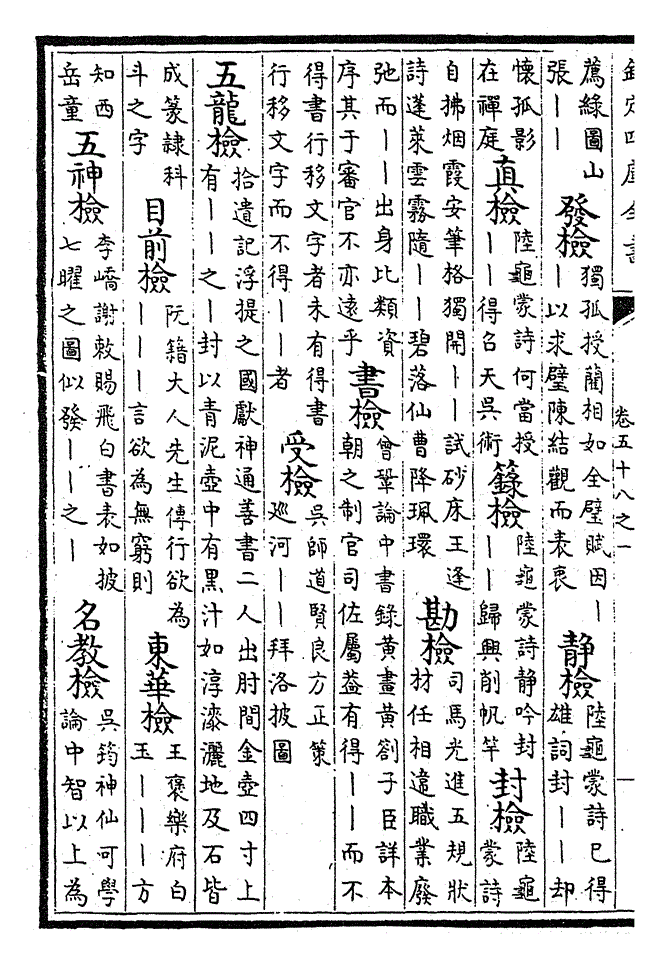 欽定四庫全書
卷五十八之一
薦綠圖山
張｜｜
發檢
獨孤授藺相如全璧賦因｜
｜以求璧陳結觀而表衷
靜檢
陸龜蒙詩已得
雄詞封｜｜却
懷孤影
在禪庭
真檢
陸龜蒙詩何當授
｜｜得召天吳術
籙檢
陸龜蒙詩靜吟封
｜｜歸興削帆竿
封檢
陸龜
蒙詩
自拂烟霞安筆格獨開｜｜試砂床王逢
詩蓬萊雲霧隨｜｜碧落仙曹降珮環
勘檢
司馬光進五規狀
材任相違職業廢
弛而｜｜出身比類資
序其于審官不亦遠乎
書檢
曾鞏論中書錄黄畫黄劄子臣詳本
朝之制官司佐屬葢有得｜｜而不
得書行移文字者未有得書
行移文字而不得｜｜者
受檢
吳師道賢良方正策
巡河｜｜拜洛披圖
五龍檢
拾遺記浮提之國獻神通善書二人出肘間金壺四寸上
有｜｜之｜封以青泥壺中有黑汁如淳漆灑地及石皆
成篆隷科
斗之字
目前檢
阮籍大人先生傳行欲為
｜｜｜言欲為無窮則
東華檢
王褒樂府白
玉｜｜｜方
知西
岳童
五神檢
李嶠謝敕賜飛白書表如披
七曜之圖似發｜｜之｜
名教檢
吳筠神仙可學
論中智以上為